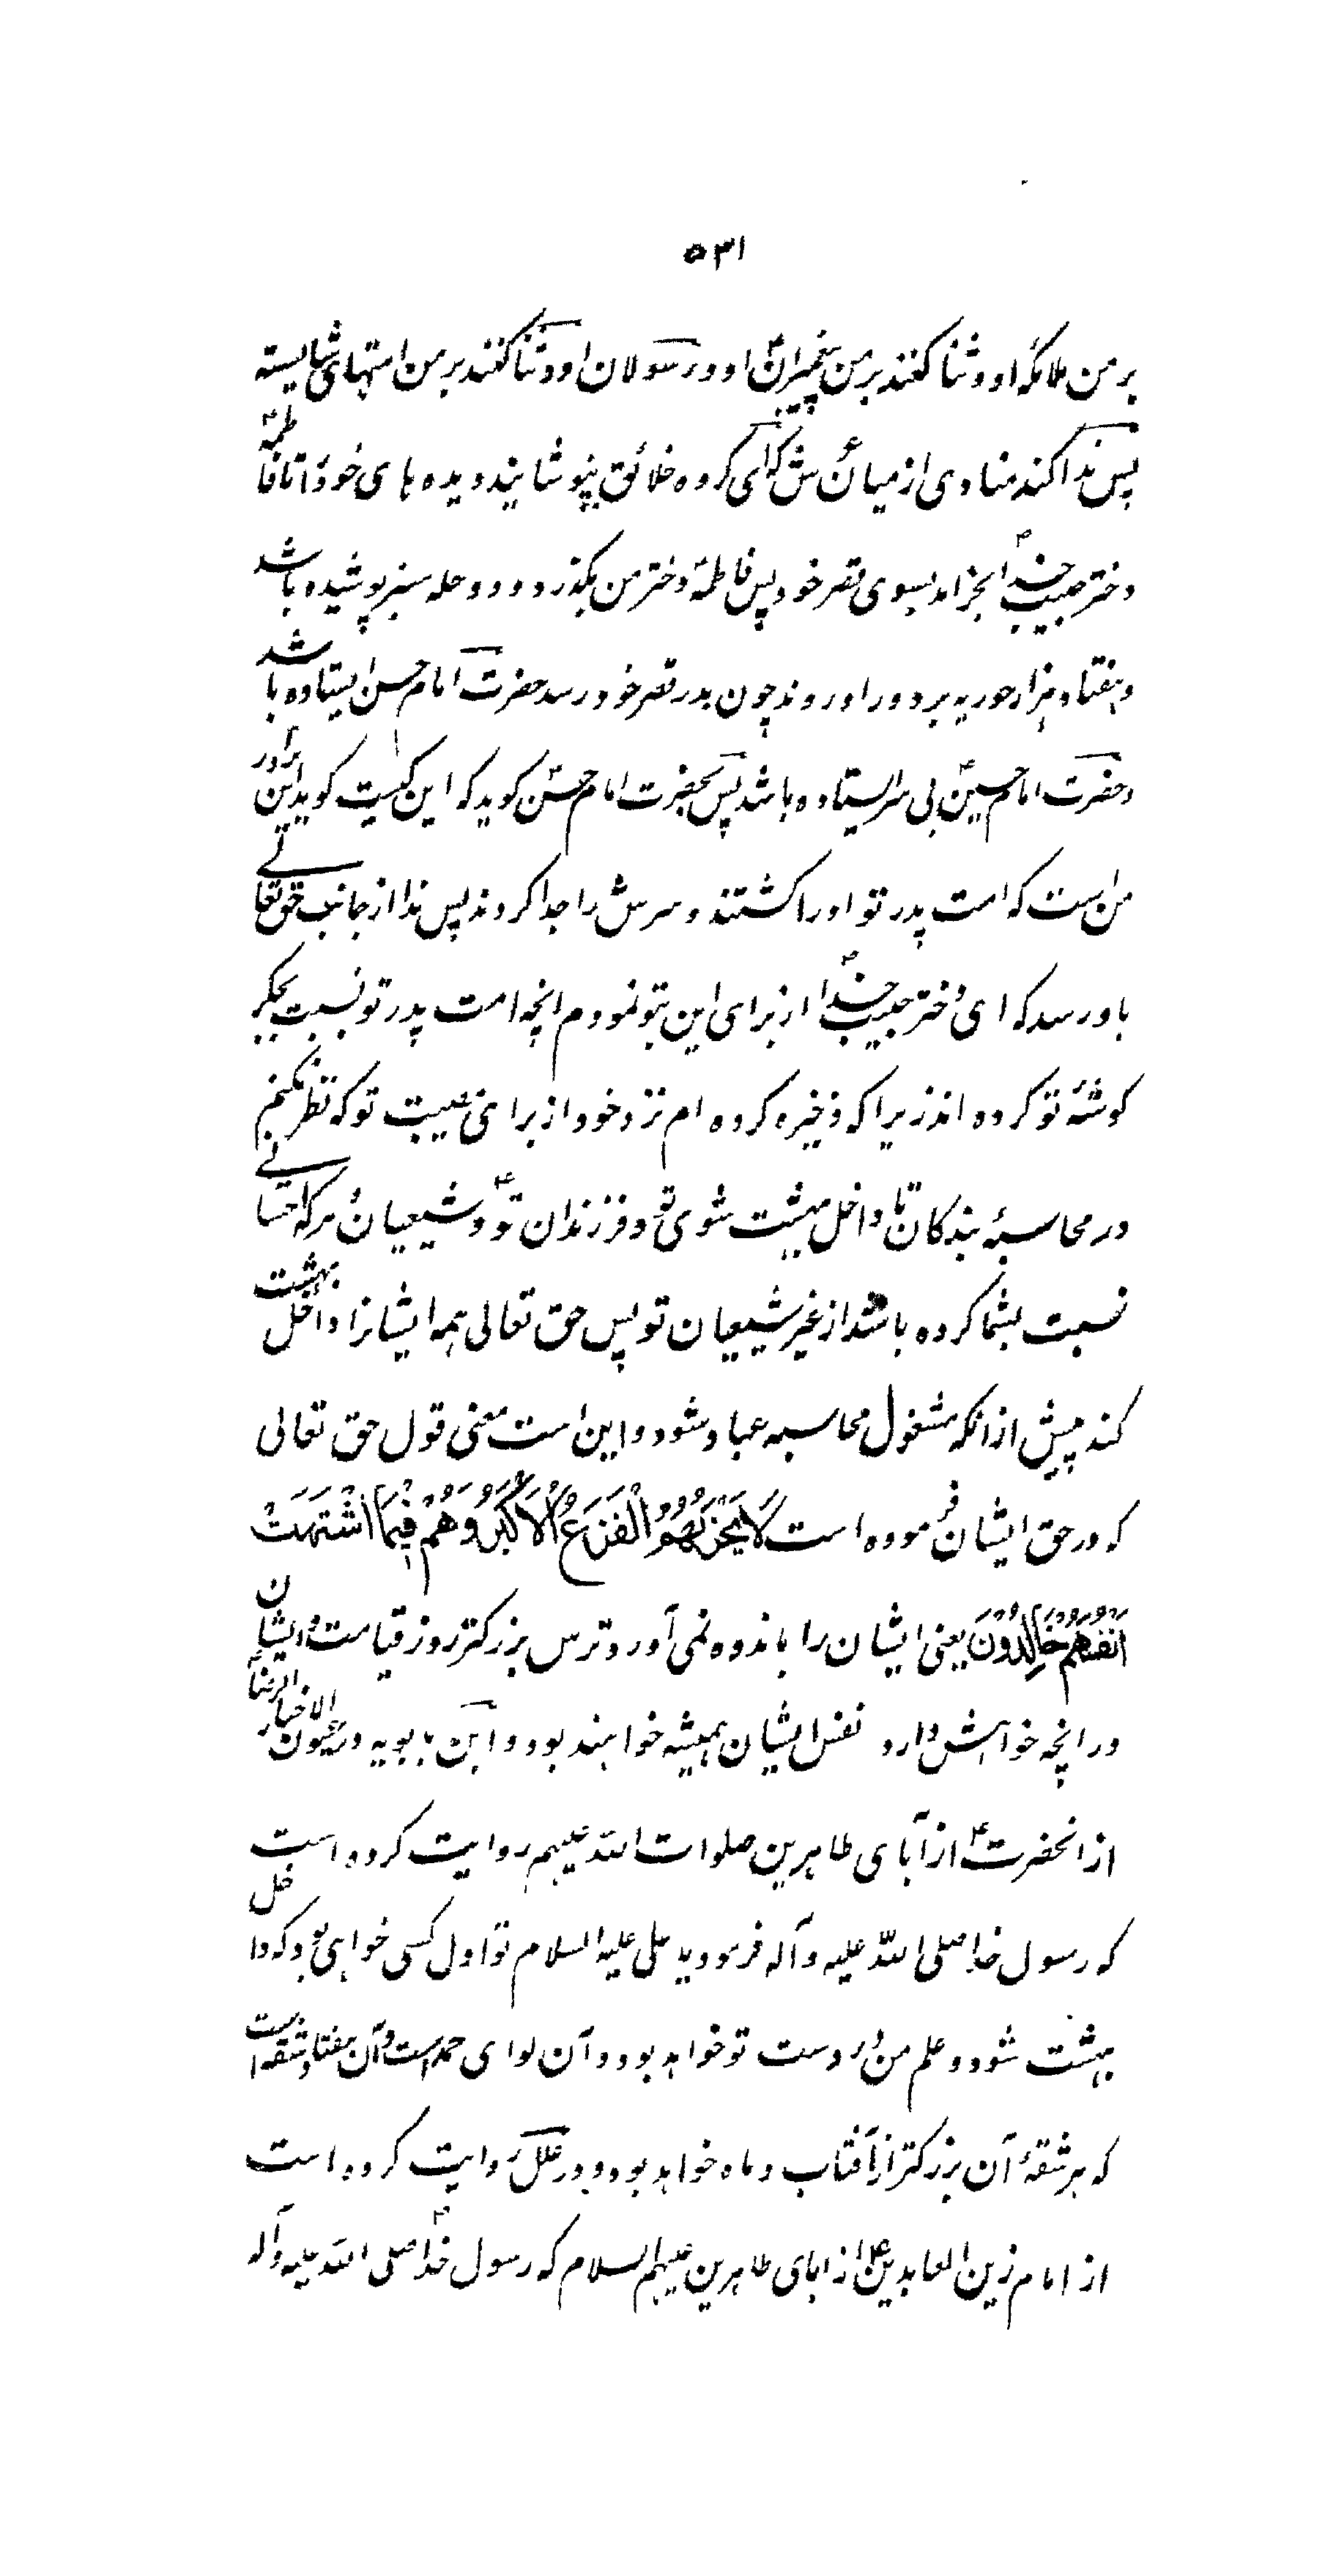 ۵۳۱
بر من ملائکه او و ثنا کنند بر من پیغمبران او و رسولان او و ثنا کنند بر من امتهای شایسته
پس ندا کند منادی از میان عرش که ای گروه خلائق بپوشانید دیده های خود را تا فاطمه
دختر حبیب خدا بخرامد بسوی قصر خود پس فاطمه دختر من بگذرد و دو حله سبز پوشیده باشد
و هفتاد هزار حوریه بر دور او روند چون بدر قصر خود رسد حضرت امام حسن ایستاده باشد
و حضرت امام حسین بی سر ایستاده باشد پس بحضرت امام حسن کوید که این کیست کوید این برادر
من است که امت پدر تو او را کشتند و سرش را جدا کردند پس ندا از جانب حق تعالی
باو رسد که ای دختر حبیب خدا از برای این بتو نمودم انچه امت پدر تو نسبت بجکر
کوشۀ تو کرده اند زیرا که ذخیره کرده ام نزد خود از برای مصیبت تو که نظر نکنم
در محاسبۀ بندکان تا داخل بهشت شوی تو و فرزندان تو و شیعیان و هر که احسانی
نسبت بشما کرده باشد از غیر شیعیان تو پس حق تعالی همه ایشانرا داخل بهشت
کند پیش از انکه مشغول محاسبه عباد شود و این است معنی قول حق تعالی
که در حق ایشان فرموده است لَا یَحْزُنُهُمُ الْفَزَعُ الْاَکْبَرُ وَ هُمْ فِیمَا اشْتَهَتْ
اَنْفُسُهُمْ خَالِدُوْنَ یعنی ایشان را باندوه نمی آورد ترس بزرکتر روز قیامت و ایشان
در انچه خواهش دارد نفس ایشان همیشه خواهند بود و ابن بابویه در عیون الاخبار الرضا
از انحضرت از آبای طاهرین صلوات الله علیهم روایت کرده است
که رسول خدا صلی الله علیه و آله فرمود یا علی علیه السلام تو اول کسی خواهی بود که داخل
بهشت شود و علم من در دست تو خواهد بود و آن لوای حمد است و آن هفتاد شقه است
که هر شقۀ آن بزرکتر از آفتاب و ماه خواهد بود و در علل روایت کرده است
از امام زین العابدین از ابای طاهرین علیهم السلام که رسول خدا صلی الله علیه و آله